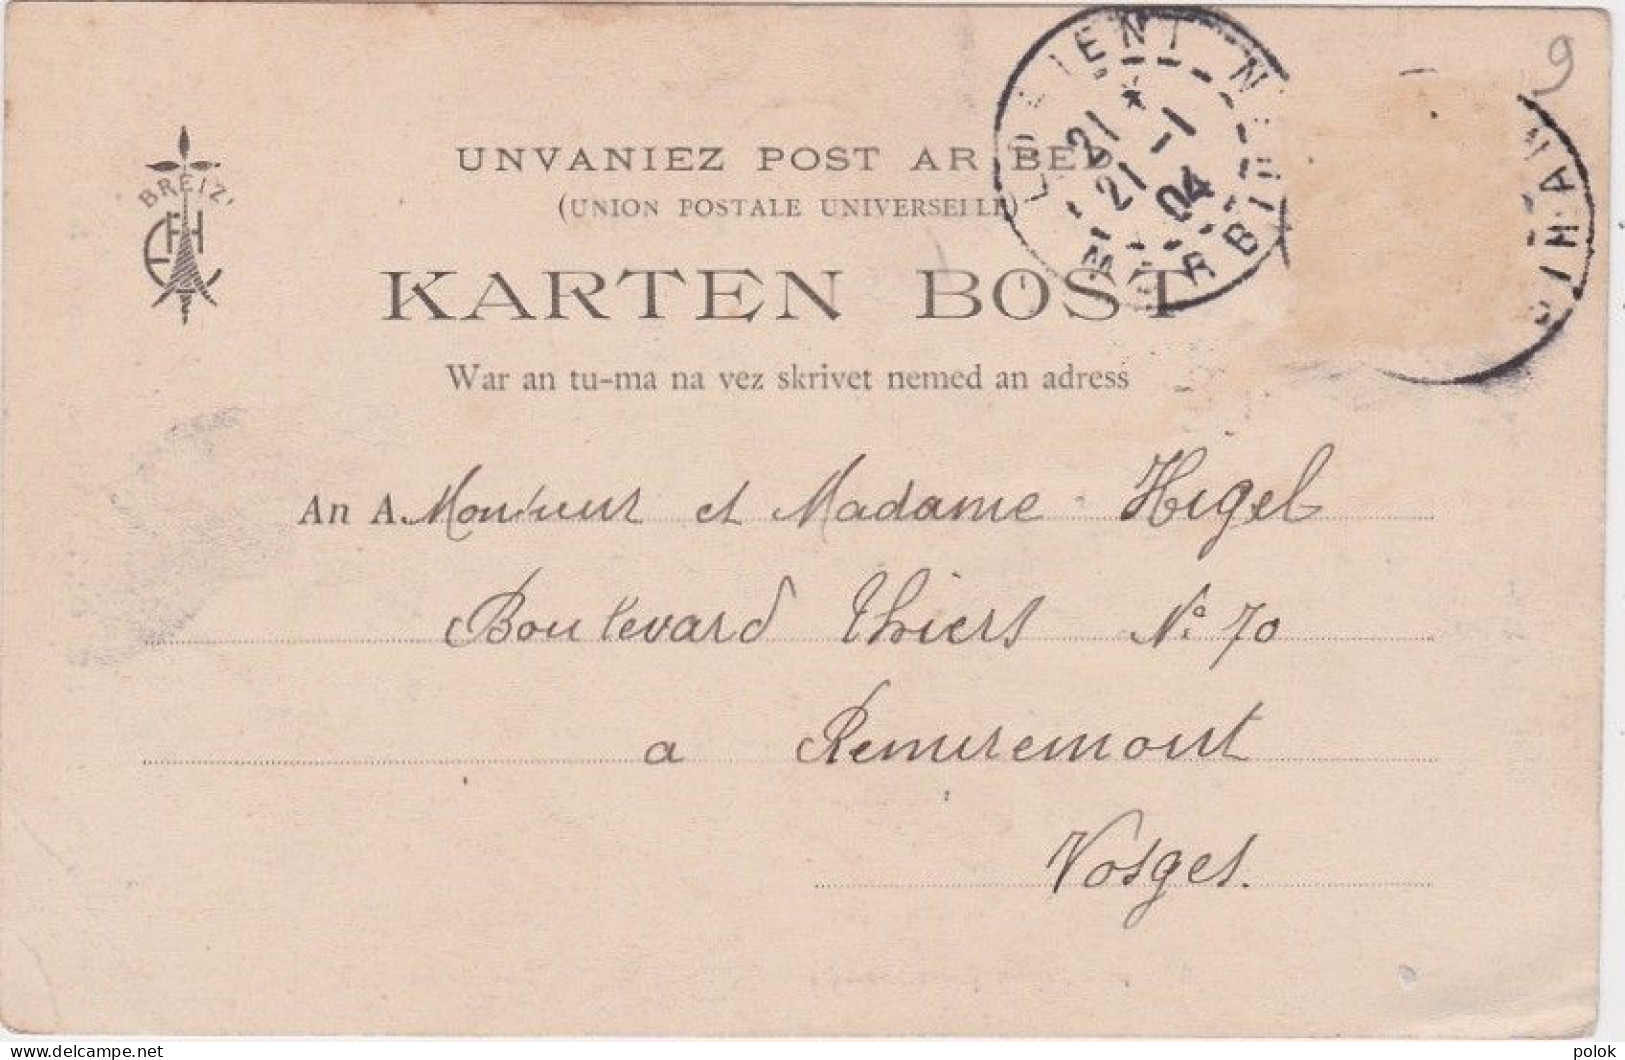 9
LORIENT
21 * 1-1
21 04
MORBIHAN
MORBIHAN
BREIZ
UNVANIEZ POST AR BED
(UNION POSTALE UNIVERSELLE)
KARTEN BOST
War an tu-ma na vez skrivet nemed an adress
An A. Monsieur et Madame Higel
Boulevard Thiers No 70
a Remiremont
Vosges.
delcampe.net
polok